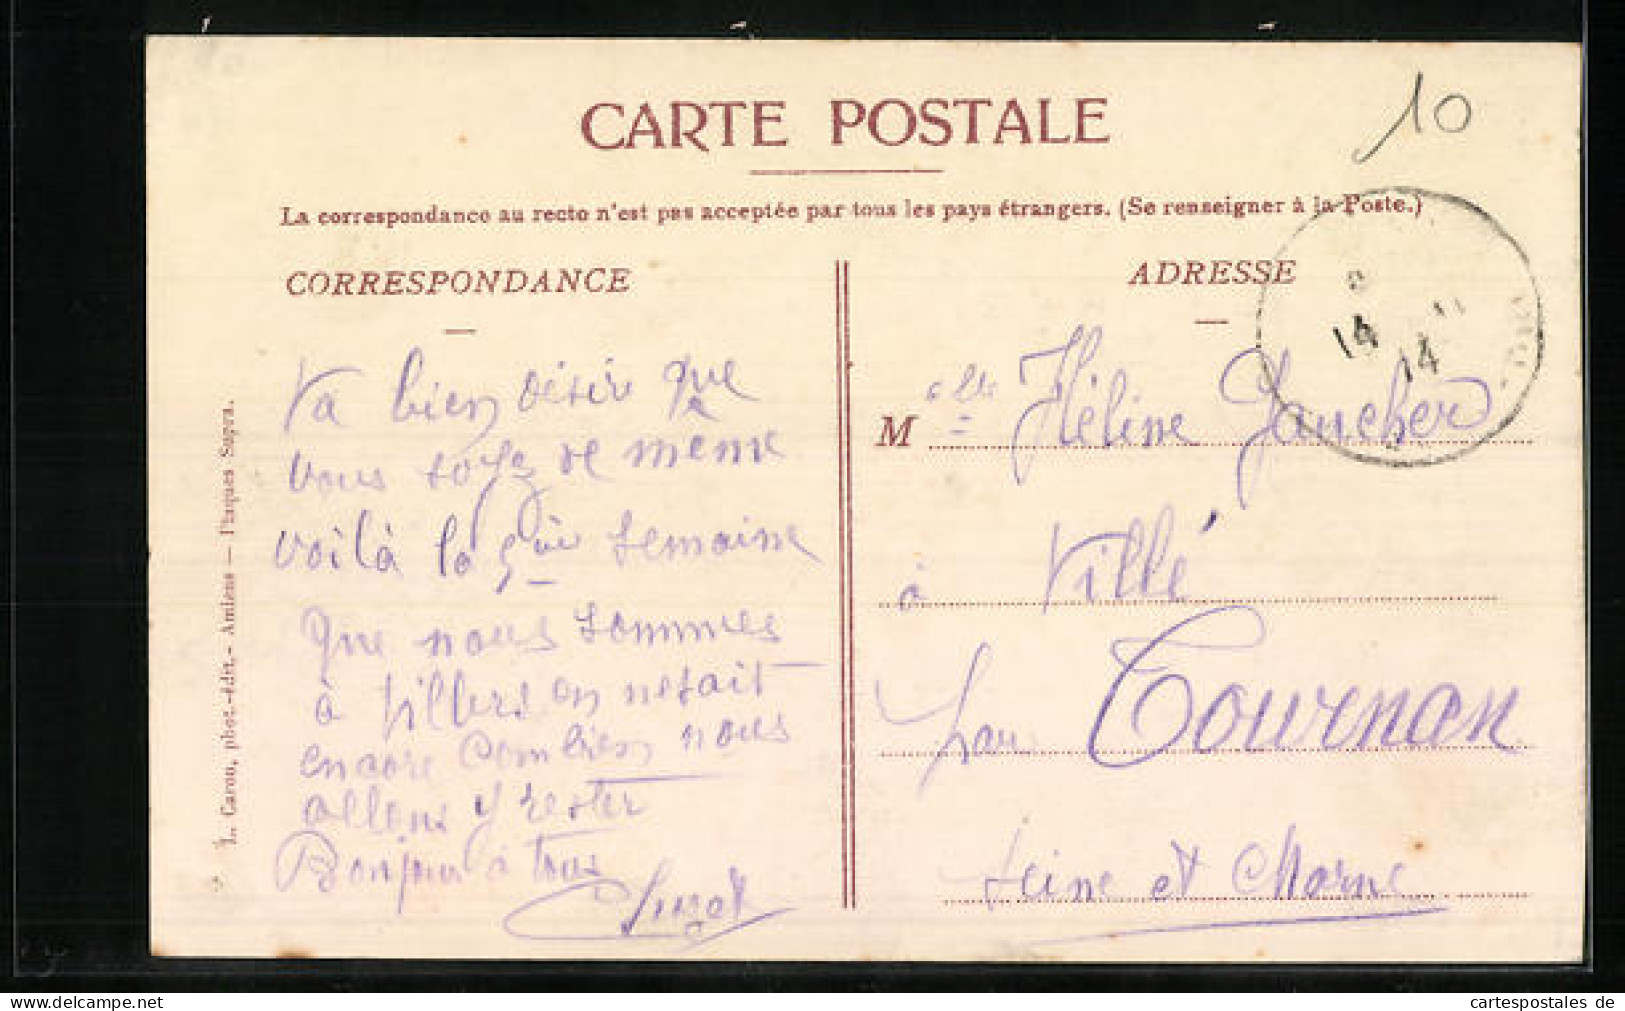 10
CARTE POSTALE
La correspondance au recto n'est pas acceptée par tous les pays étrangers. (Se renseigner à la Poste.)
CORRESPONDANCE
Va bien désir que
vous soyez de meme
voilà la 5me semaine
que nous sommes
à Villers on nesait
encore combien nous
allons y rester
Bonjour à tous
L. Caron, phot.-édit.- Amiens — Plaques Supra.
ADRESSE
14 14
Melle Hélène
à Villé
par Tournan
Seine et Marne
cartespostales de